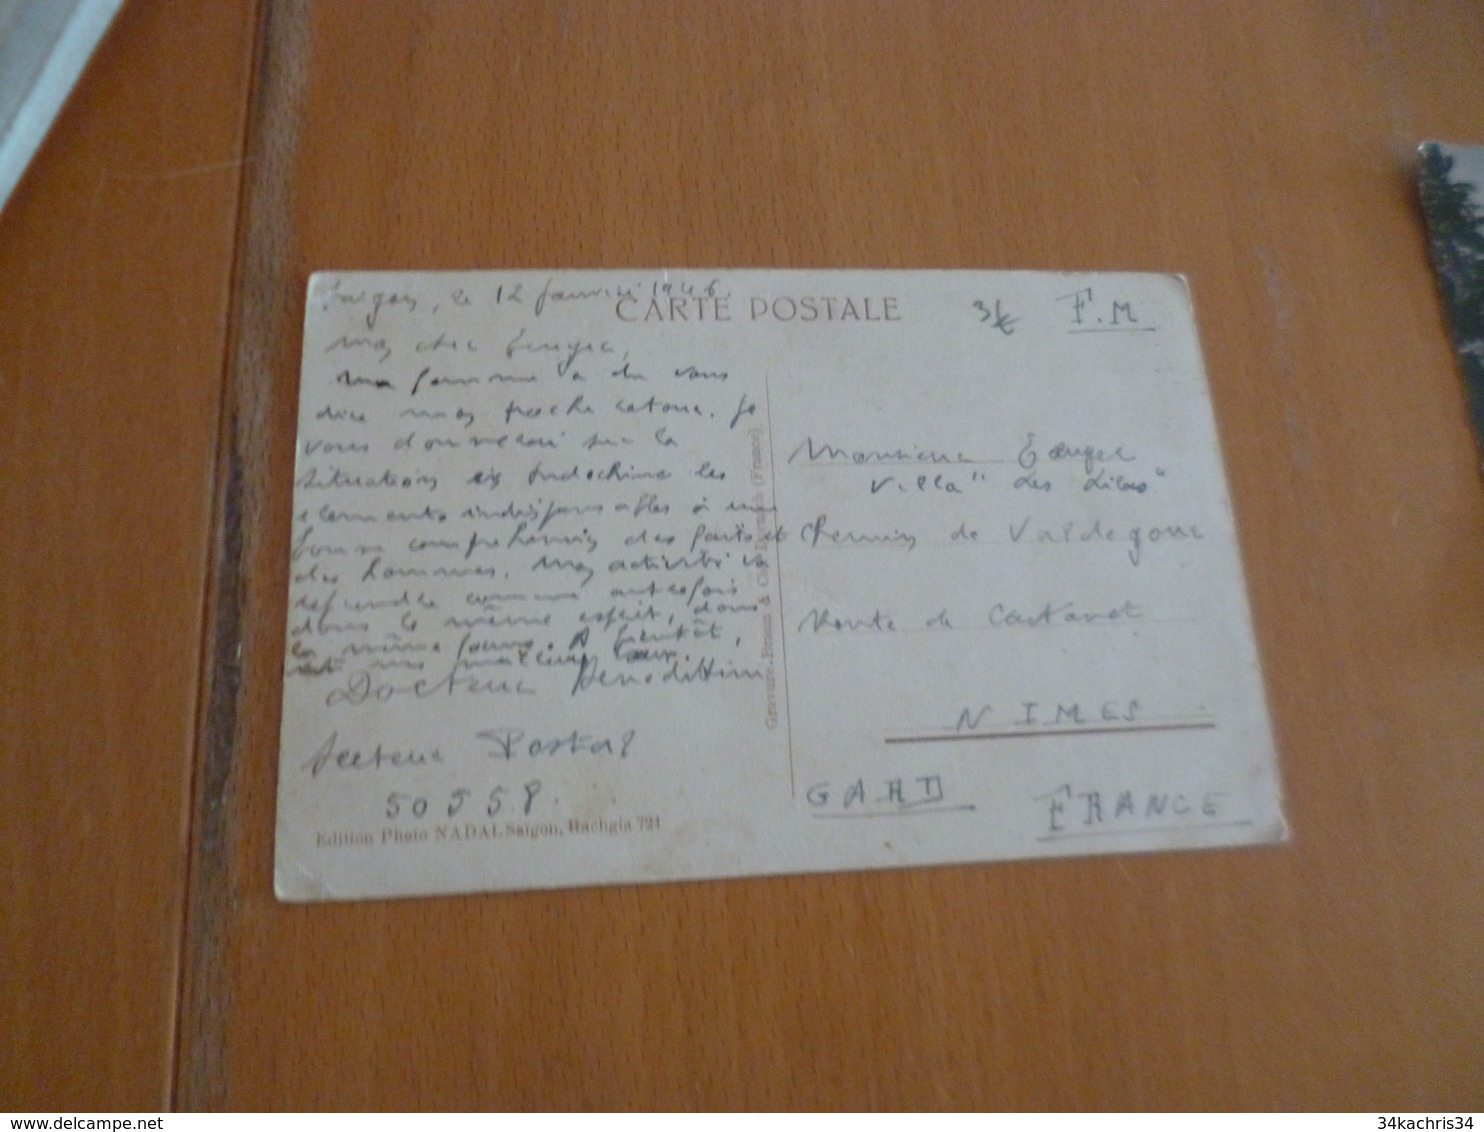 Saigon, le 12 Janvier 1946.
CARTE POSTALE
3€
F.M
Mon cher
Ma femme a du vous
dire mon proche retour. Je
vous donnerai sur la
situation en Indochine les
elements indispensables à une
bonne comprehension des faits et
des hommes. Mon activité va
reprendre comme autrefois
dans le même esprit, dans
la même forme. A bientôt,
Docteur Benedittini
Secteur Postal
50558.
Edition Photo NADAL Saïgon, Rachgia 721
Gravure. Braun & Cie, Dornach (France)
Monsieur
Villa "Les Lilas"
Chemin de Valdegour
Route de Castanet
NIMES
GARD
FRANCE
www.delcampe.net
34kachris34